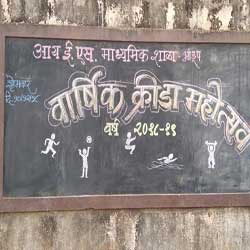 आय.ई.एस. माध्यमिक शाळा-
सोमवार
वार्षिक क्रीडा महोत्सव
वर्ष २०१८-१९